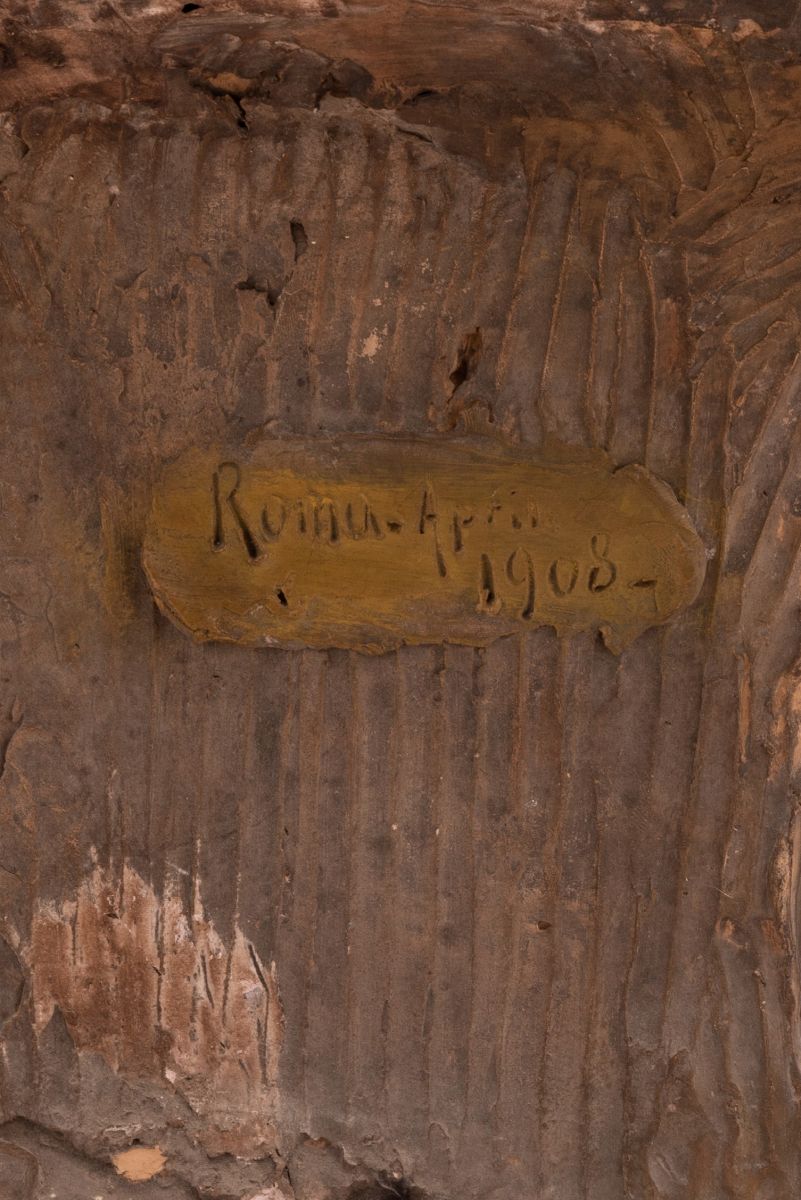 Roma. April
1908-